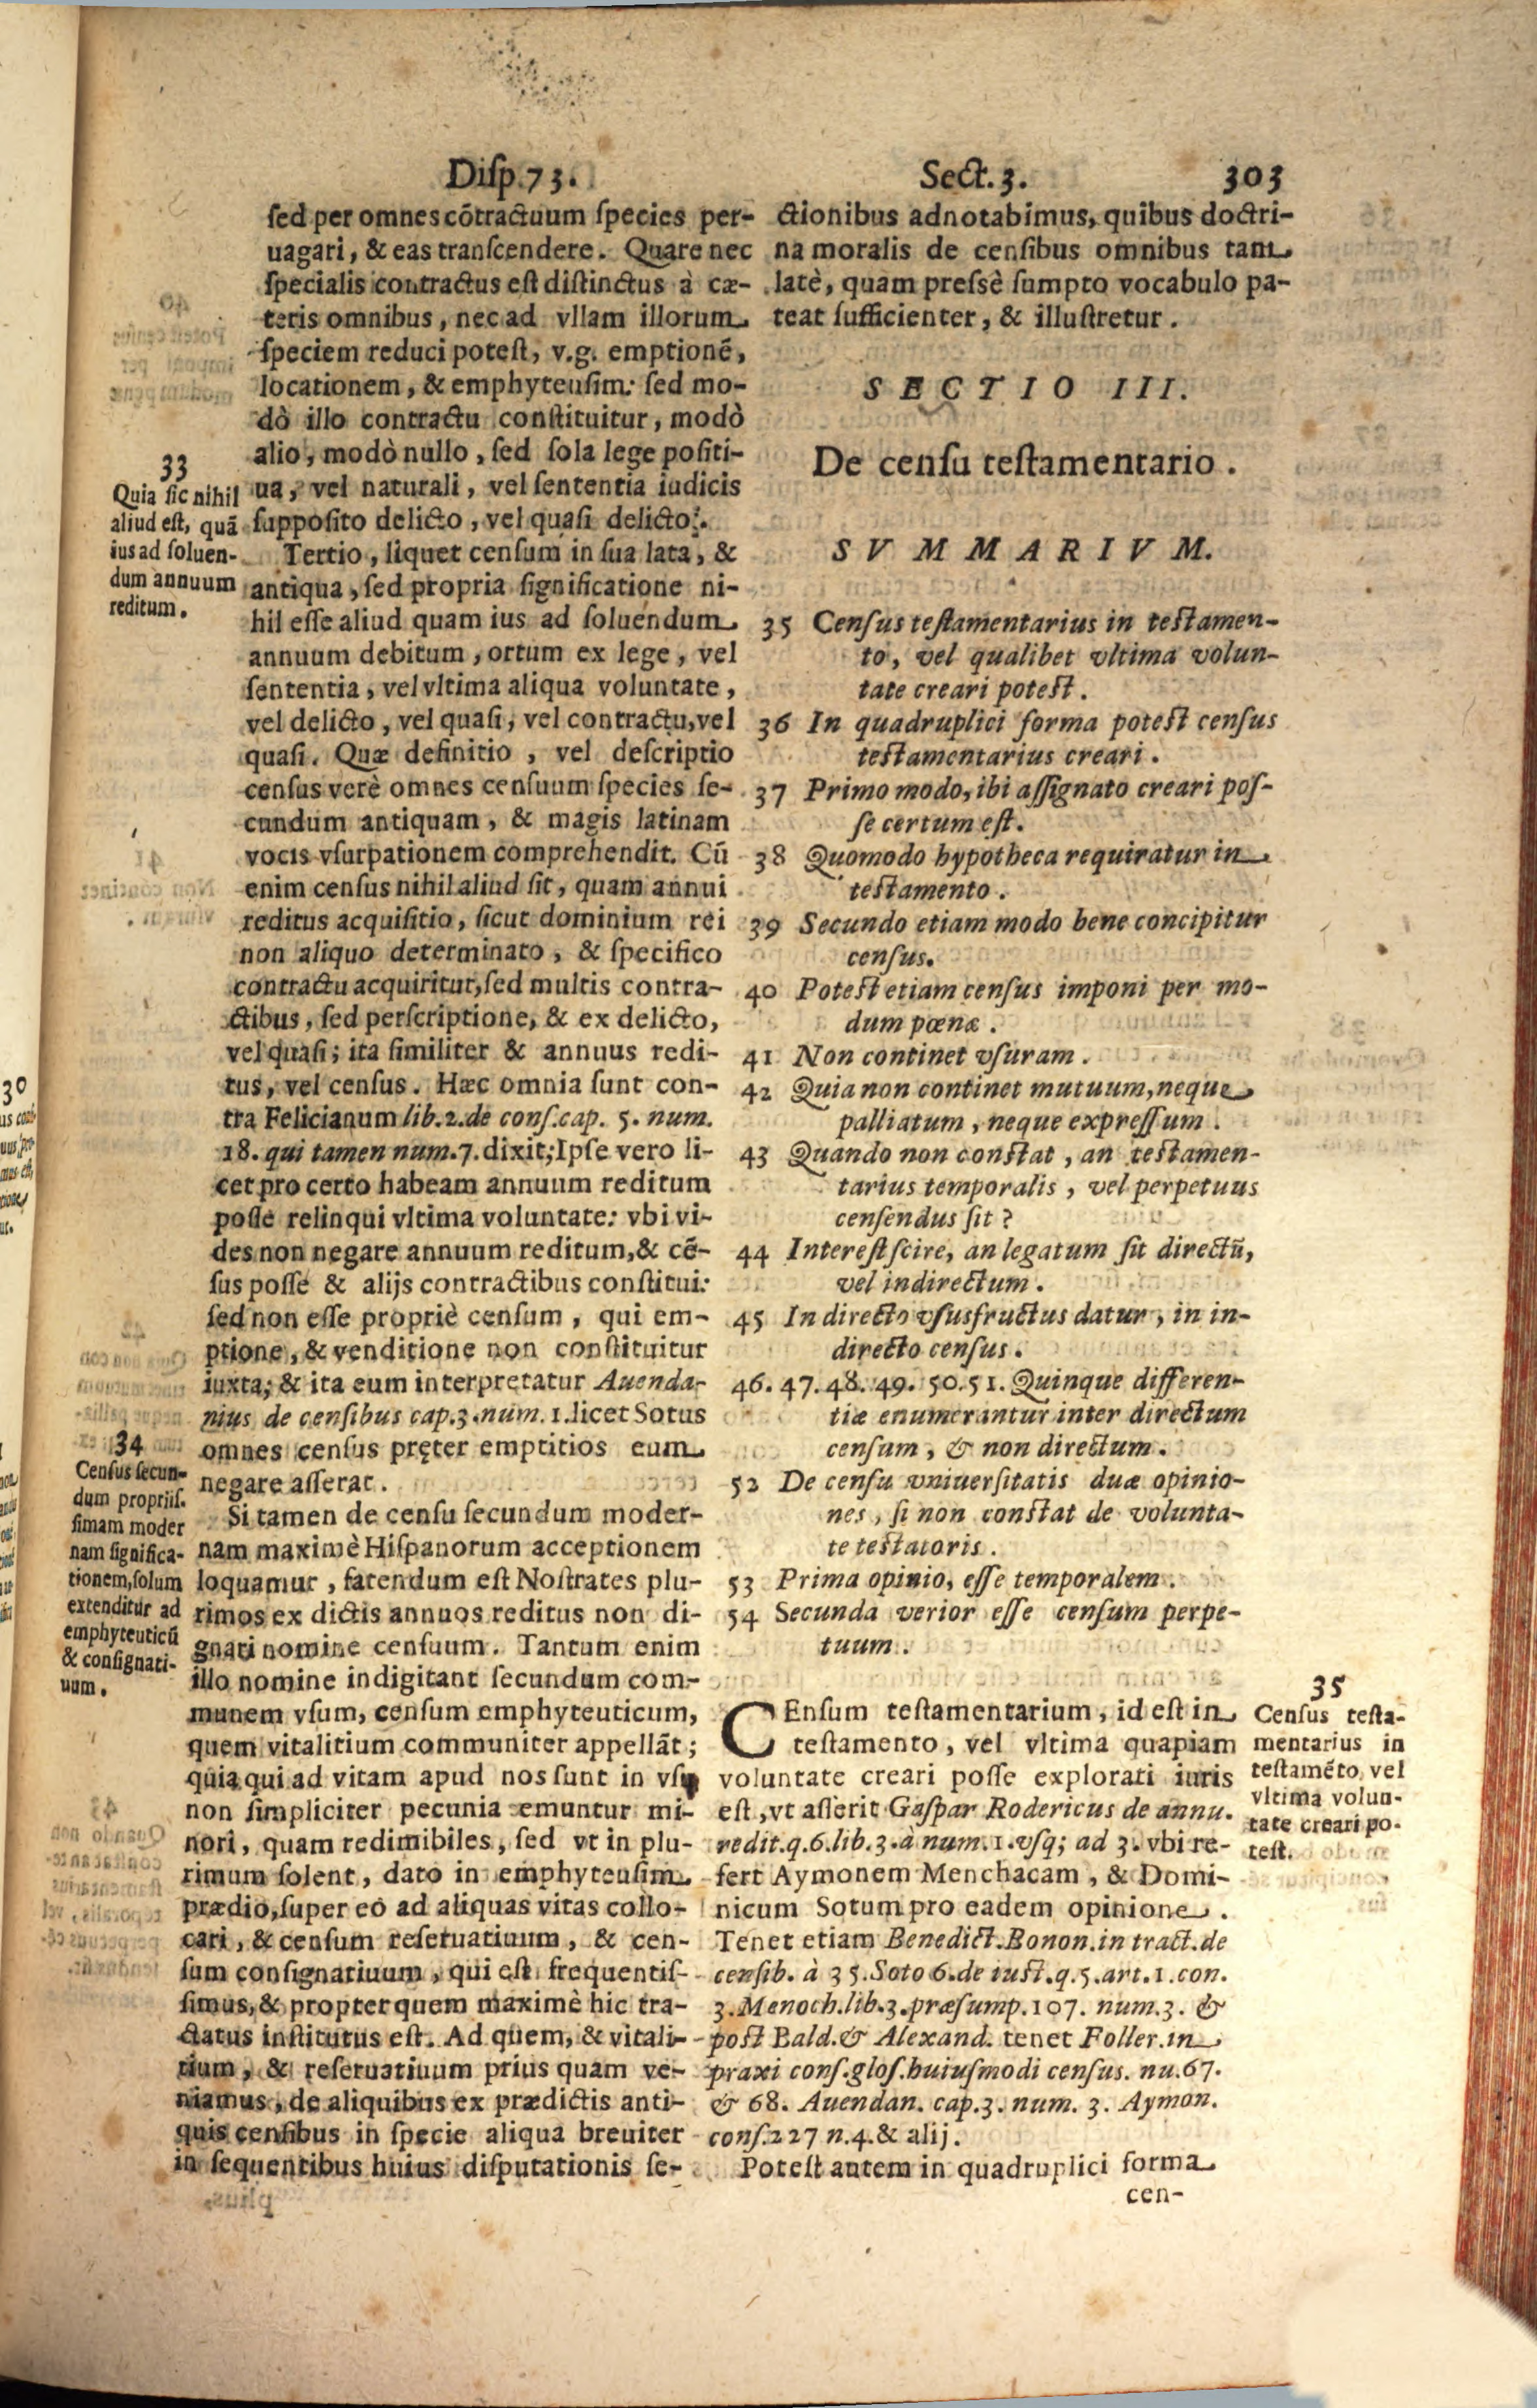 Disp. 73. Sect. 3. 303
sed per omnes cõtractuum species per-
uagari, & eas transcendere. Quare nec
specialis contractus est distinctus à cæ-
teris omnibus, nec ad vllam illorum
speciem reduci potest, v.g. emptionẽ,
locationem, & emphyteusim: sed mo-
dò illo contractu constituitur, modò
alio, modò nullo, sed sola lege positi-
ua, vel naturali, vel sententia iudicis
supposito delicto, vel quasi delicto.
33
Quia sic nihil
aliud est, quã
ius ad soluen-
dum annuum
reditum.
Tertio, liquet censum in sua lata, &
antiqua, sed propria significatione ni-
hil esse aliud quam ius ad soluendum
annuum debitum, ortum ex lege, vel
sententia, vel vltima aliqua voluntate,
vel delicto, vel quasi, vel contractu, vel
quasi. Quæ definitio, vel descriptio
census verè omnes censuum species se-
cundum antiquam, & magis latinam
vocis vsurpationem comprehendit. Cũ
enim census nihil aliud sit, quam annui
reditus acquisitio, sicut dominium rei
non aliquo determinato, & specifico
contractu acquiritur, sed multis contra-
ctibus, sed perscriptione, & ex delicto,
vel quasi; ita similiter & annuus redi-
tus, vel census. Hæc omnia sunt con-
tra Felicianum lib.2.de cens.cap. 5. num.
18. qui tamen num.7. dixit; Ipse vero li-
cet pro certo habeam annuum reditum
posse relinqui vltima voluntate: vbi vi-
des non negare annuum reditum, & cẽ-
sus posse & alijs contractibus constitui:
sed non esse propriè censum, qui em-
ptione, & venditione non constituitur
iuxta; & ita eum interpretatur Auenda-
nius de censibus cap.3.num.1. licet Sotus
omnes census pręter emptitios eum
negare asserat.
34
Census secun-
dum propriis.
simam moder
nam significa-
tionem, solum
extenditur ad
emphyteuticũ
& consignati-
uum.
Si tamen de censu secundum moder-
nam maximè Hispanorum acceptionem
loquamur, fatendum est Nostrates plu-
rimos ex dictis annuos reditus non di-
gnati nomine censuum. Tantum enim
illo nomine indigitant secundum com-
munem vsum, censum emphyteuticum,
quem vitalitium communiter appellãt;
quia qui ad vitam apud nos sunt in vsu
non simpliciter pecunia emuntur mi-
nori, quam redimibiles, sed vt in plu-
rimum solent, dato in emphyteusim
prædio, super eo ad aliquas vitas collo-
cari, & censum reseruatiuum, & cen-
sum consignatiuum, qui est frequentis-
simus, & propter quem maximè hic tra-
ctatus institutus est. Ad quem, & vitali-
tium, & reseruatiuum prius quam ve-
niamus, de aliquibus ex prædictis anti-
quis censibus in specie aliqua breuiter
in sequentibus huius disputationis se-
ctionibus adnotabimus, quibus doctri-
na moralis de censibus omnibus tam
latè, quam pressè sumpto vocabulo pa-
teat sufficienter, & illustretur.
SECTIO III.
De censu testamentario.
SVMMARIVM.
35 Census testamentarius in testamen-
to, vel qualibet vltima volun-
tate creari potest.
36 In quadruplici forma potest census
testamentarius creari.
37 Primo modo, ibi assignato creari pos-
se certum est.
38 Quomodo hypotheca requiratur in
testamento.
39 Secundo etiam modo bene concipitur
census.
40 Potest etiam census imponi per mo-
dum pœnæ.
41 Non continet vsuram.
42 Quia non continet mutuum, neque
palliatum, neque expressum.
43 Quando non constat, an testamen-
tarius temporalis, vel perpetuus
censendus sit?
44 Interest scire, an legatum sit directũ,
vel indirectum.
45 In directo vsusfructus datur, in in-
directo census.
46. 47. 48. 49. 50. 51. Quinque differen-
tiæ enumerantur inter directum
censum, & non directum.
52 De censu vniuersitatis duæ opinio-
nes, si non constat de volunta-
te testatoris.
53 Prima opinio, esse temporalem.
54 Secunda verior esse censum perpe-
tuum.
35
Census testa-
mentarius in
testamẽto, vel
vltima volun-
tate creari po-
test.
CEnsum testamentarium, id est in
testamento, vel vltima quapiam
voluntate creari posse explorati iuris
est, vt asserit Gaspar Rodericus de annu.
redit.q.6.lib.3.a num.1.vsq; ad 3. vbi re-
fert Aymonem Menchacam, & Domi-
nicum Sotum pro eadem opinione.
Tenet etiam Benedict.Bonon.in tract.de
censib. à 35.Soto 6.de iust.q.5.art.1.con.
3.Menoch.lib.3.præsump.107. num.3. &
post Bald.& Alexand. tenet Foller.in
praxi cens.glos.huiusmodi census. nu.67.
& 68. Auendan. cap.3. num. 3. Aymon.
cons.227 n.4.& alij.
Potest autem in quadruplici forma
cen-